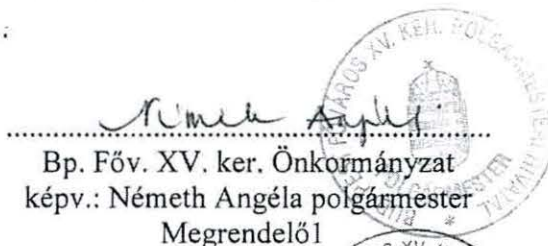 Németh Angéla
Bp. Főv. XV. ker. Önkormányzat
képv.: Németh Angéla polgármester
Megrendelő1
XV. KER. POLGÁRMESTERI HIVATAL
POLGÁRMESTER